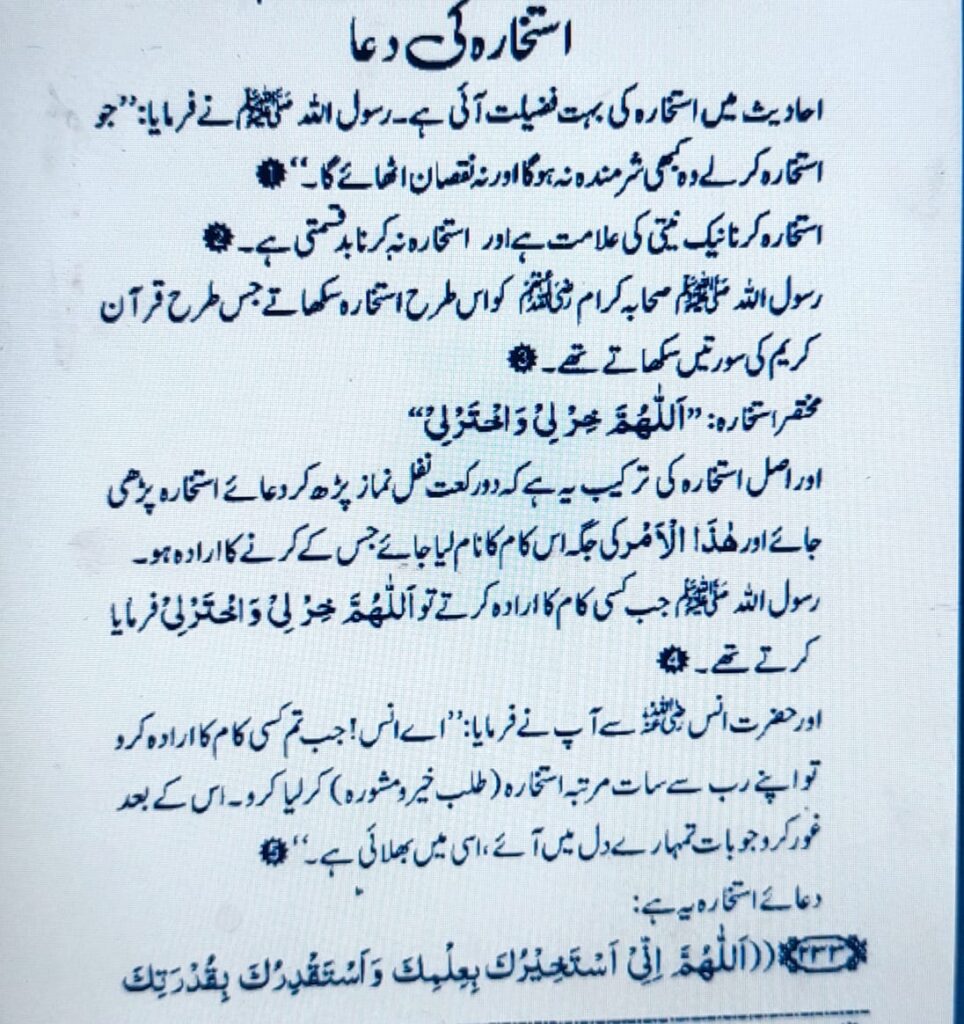 استخارہ کی دعا
احادیث میں استخارہ کی بہت فضیلت آئی ہے۔ رسول اللہ ﷺ نے فرمایا: ’’جو
استخارہ کرلے وہ کبھی شرمندہ نہ ہوگا اور نہ نقصان اٹھائے گا۔‘‘ ❶
استخارہ کرنا نیک نیتی کی علامت ہے اور استخارہ نہ کرنا بدقسمتی ہے۔ ❷
رسول اللہ ﷺ صحابہ کرام رضی اللہ عنہم کو اس طرح استخارہ سکھاتے جس طرح قرآن
کریم کی سورتیں سکھاتے تھے۔ ❸
مختصر استخارہ: ’’اَللّٰهُمَّ خِرْ لِيْ وَاخْتَرْلِيْ‘‘
اور اصل استخارہ کی ترکیب یہ ہے کہ دو رکعت نفل نماز پڑھ کر دعائے استخارہ پڑھی
جائے اور هٰذَا الْاَمْر کی جگہ اس کام کا نام لیا جائے جس کے کرنے کا ارادہ ہو۔
رسول اللہ ﷺ جب کسی کام کا ارادہ کرتے تو اَللّٰهُمَّ خِرْ لِيْ وَاخْتَرْلِيْ فرمایا
کرتے تھے۔ ❹
اور حضرت انس رضی اللہ عنہ سے آپ نے فرمایا: ’’اے انس! جب تم کسی کام کا ارادہ کرو
تو اپنے رب سے سات مرتبہ استخارہ (طلب خیر و مشورہ) کر لیا کرو۔ اس کے بعد
غور کرو جو بات تمہارے دل میں آئے، اسی میں بھلائی ہے۔‘‘ ❺
دعائے استخارہ یہ ہے:
۲۳۳ ((اَللّٰهُمَّ اِنِّيْ اَسْتَخِيْرُكَ بِعِلْمِكَ وَاَسْتَقْدِرُكَ بِقُدْرَتِكَ